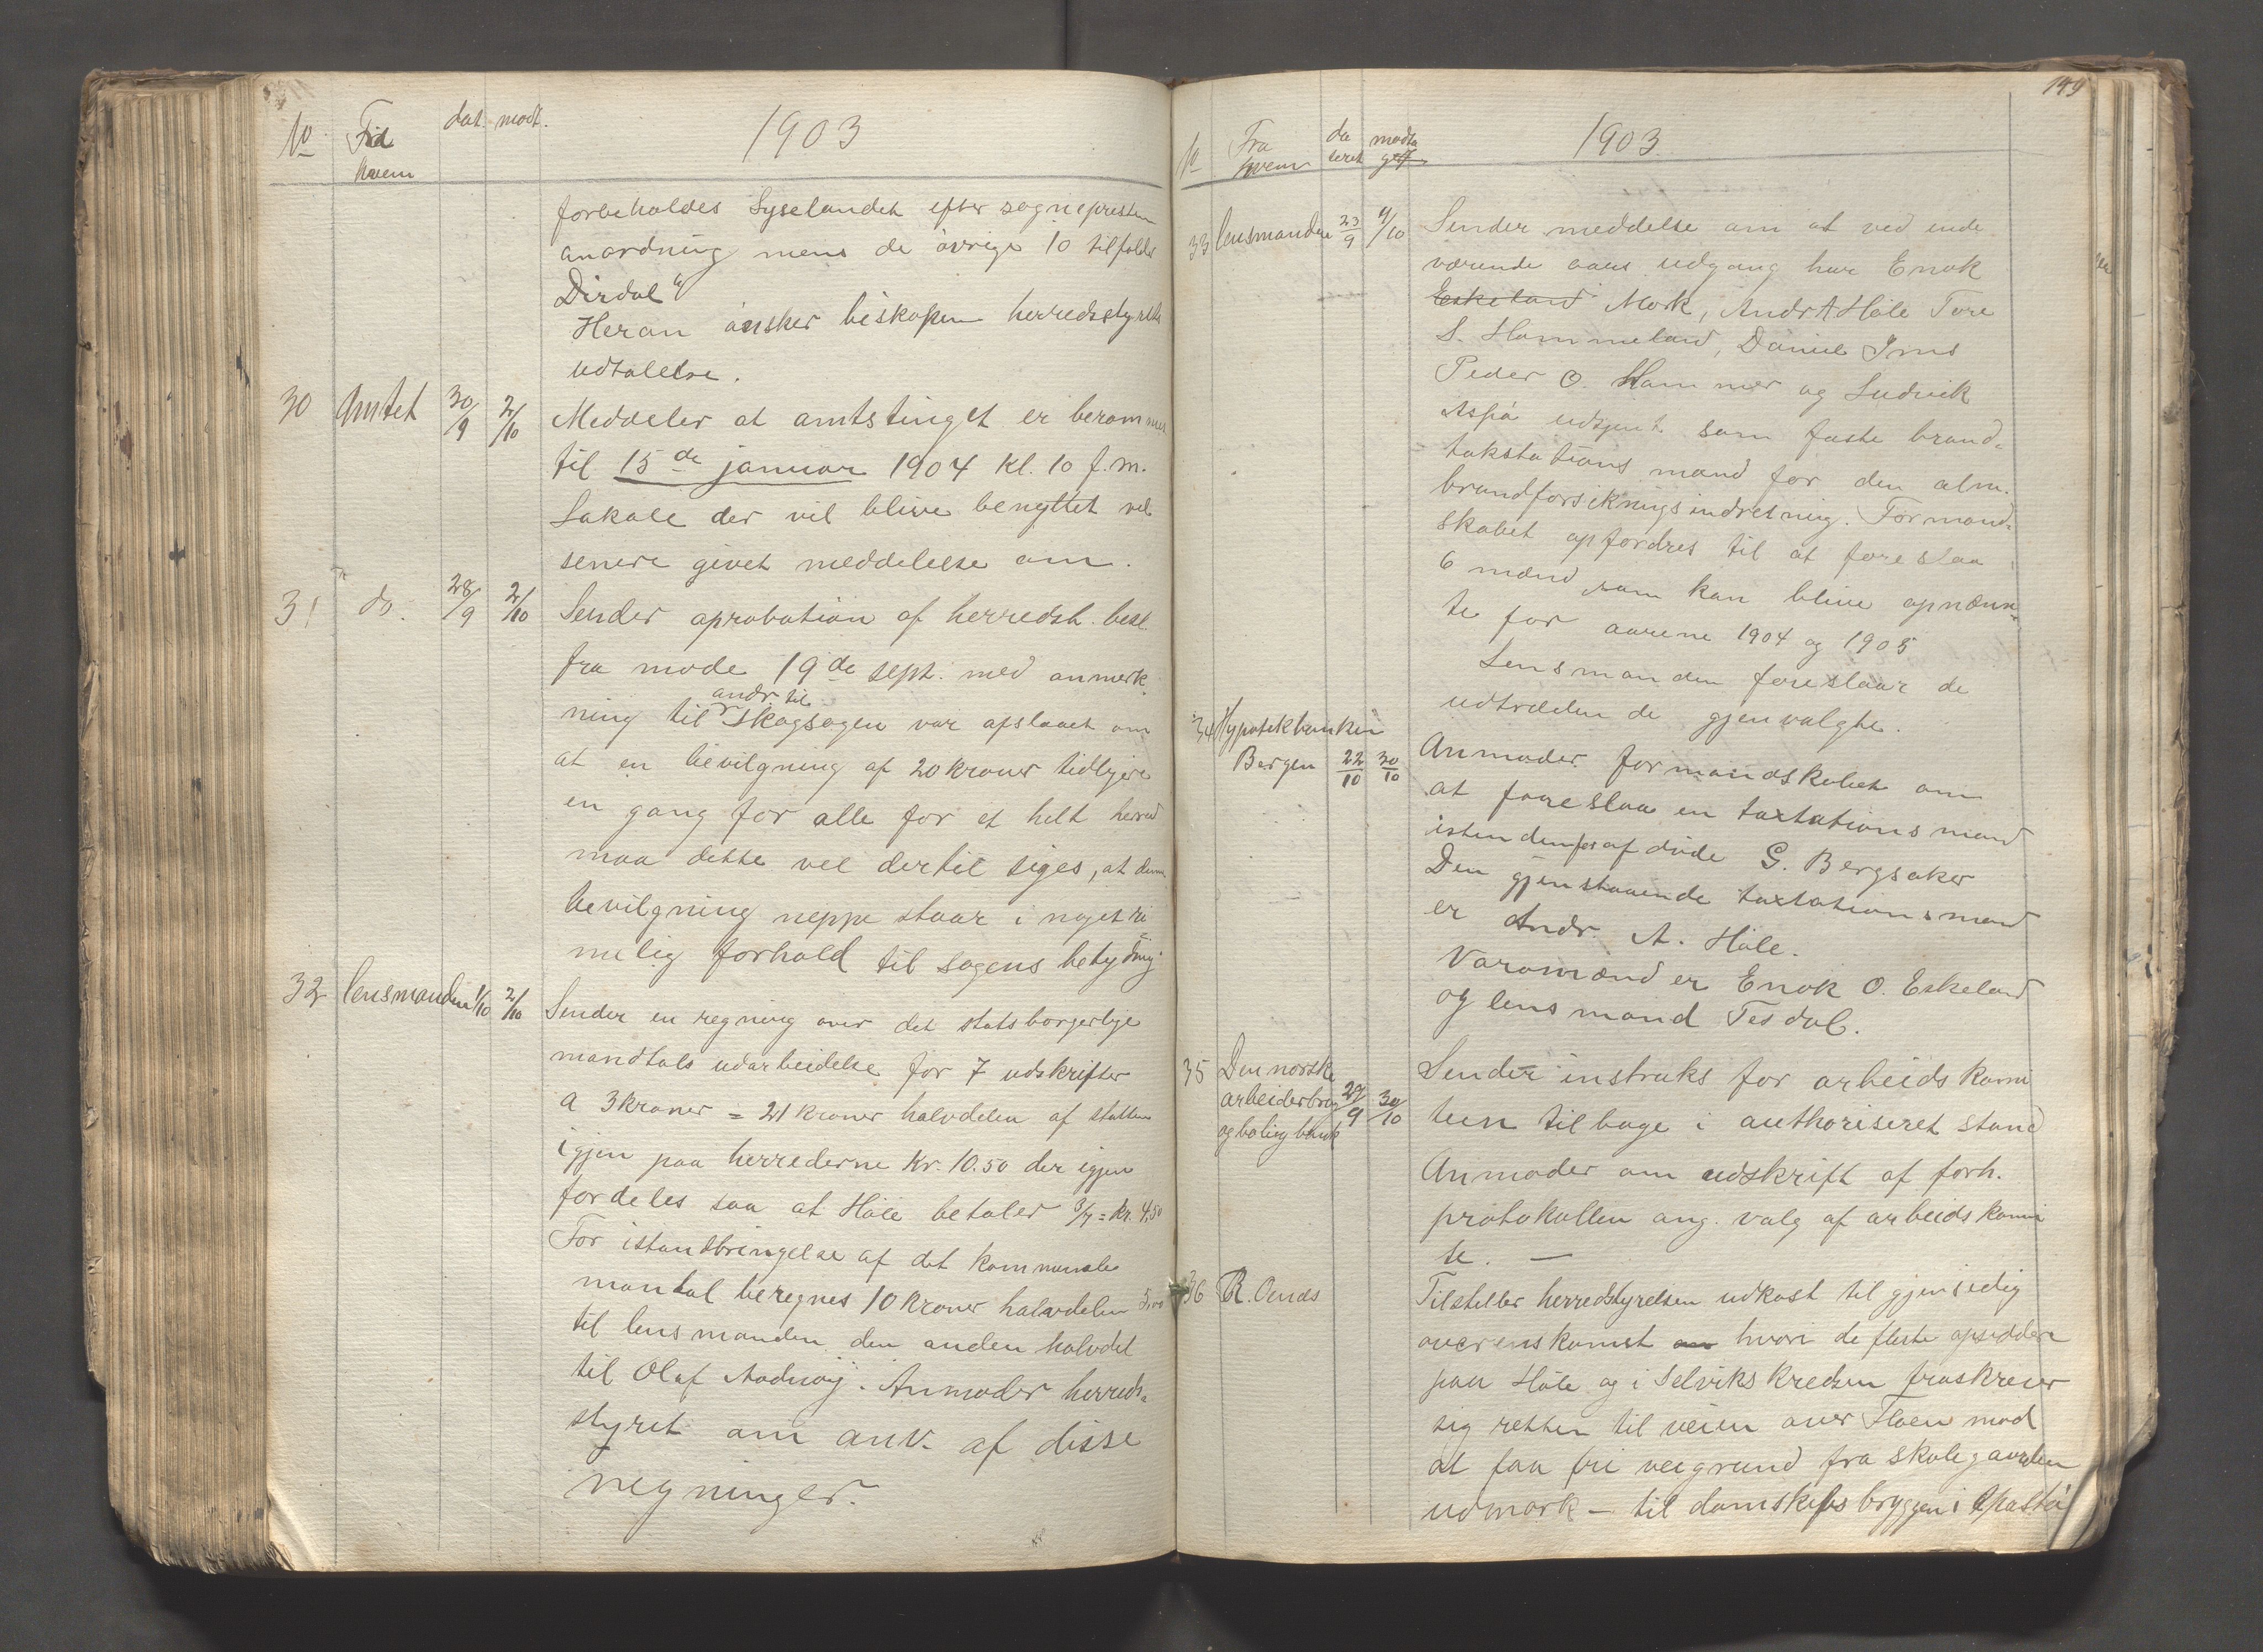 No Fra hvem dat. modt. 1903
forbeholdes Lyselandet efter sogneprestens
anordning mens de övrige 10 tilfalder
Dirdal"
Heran önsker biskopen herredsstyrets
udtalelse.
30 Amtet 30/9 2/10 Meddeler at amtstinget er berammet
til 15de januar 1904 kl. 10 f.m.
Lokale der vil blive benyttet vil
senere givet meddelelse om.
31 do. 28/9 2/10 Sender aprobation af herredsst. besl.
fra mode 19de sept. med anmerk
andr. til
ning til skogsagen var afslaaet om
at en bevilgning af 20 kroner tidligere
en gang for alle for et helt herred
maa dette vel dertil siges, at denne
bevilgning neppe staar i noget ri
melig forhold til sagens betydning.
32 lensmanden 1/10 2/10 Sender en regning over det statsborgerlige
mandtals udarbeidelse for 7 udskrifter
a 3 kroner = 21 kroner halvdelen af statten
igjen paa herrederne Kr. 10.50 der igjen
fordeles saa at Höle betaler 3/7 = Kr. 4,50
For istandbringelse af det kommunale
mantal beregnes 10 kroner halvdelen 5,00
til lensmanden den anden halvdel
til Olaf Aadnöy. Anmoder herreds-
styret om anv. af disse
regninger.
149
No Fra hvem da teret modta get 1903
33 lensmanden 23/9 4/10 Sender meddelse om at ved inde
værende aars udgang har Enok
Eskeland Mork, Andr A Höle Tore
S. Hammeland, Daniel Ims
Peder O. Hammer og Ludvik
Aspö udtjent som faste brand-
takstations mænd for den alm.
brandforsikrings indretning. Formand-
skabet opfordres til at foreslaa
6 mænd som kan blive opnævn-
te for aarene 1904 og 1905
Lensmanden foreslaar de
udtrædden de gjenvalgte.
34 Hypotekbanken
Bergen 22/10 30/10 Anmoder formandskabet om
at foreslaa en taxtations mand
istendenfor afdöde G. Bergsaker
Den gjenstaaende taxtationsmand
er Andr. A. Höle.
Varamænd er Enok O. Eskeland
og lensmand Tesdal.
35 Den norske
arbeiderbrug
og bolig bank 29/9 30/10 Sender instruks for arbeids komi
teen tilbage i authoriseret stand
Anmoder om udskrift af forh.
protokollen ang. valg af arbeidskomi
te. —
36 R. Oends Tilstiller herredstyrelsen udkast til gjensidig
overenskomst om hvori de fleste opsiddere
paa Höle og i Selvikskredsen fraskrever
sig retten til veien over Floen mod
at faa fri veigrund fra skolegaarden
udmark — til damskibsbryggen i